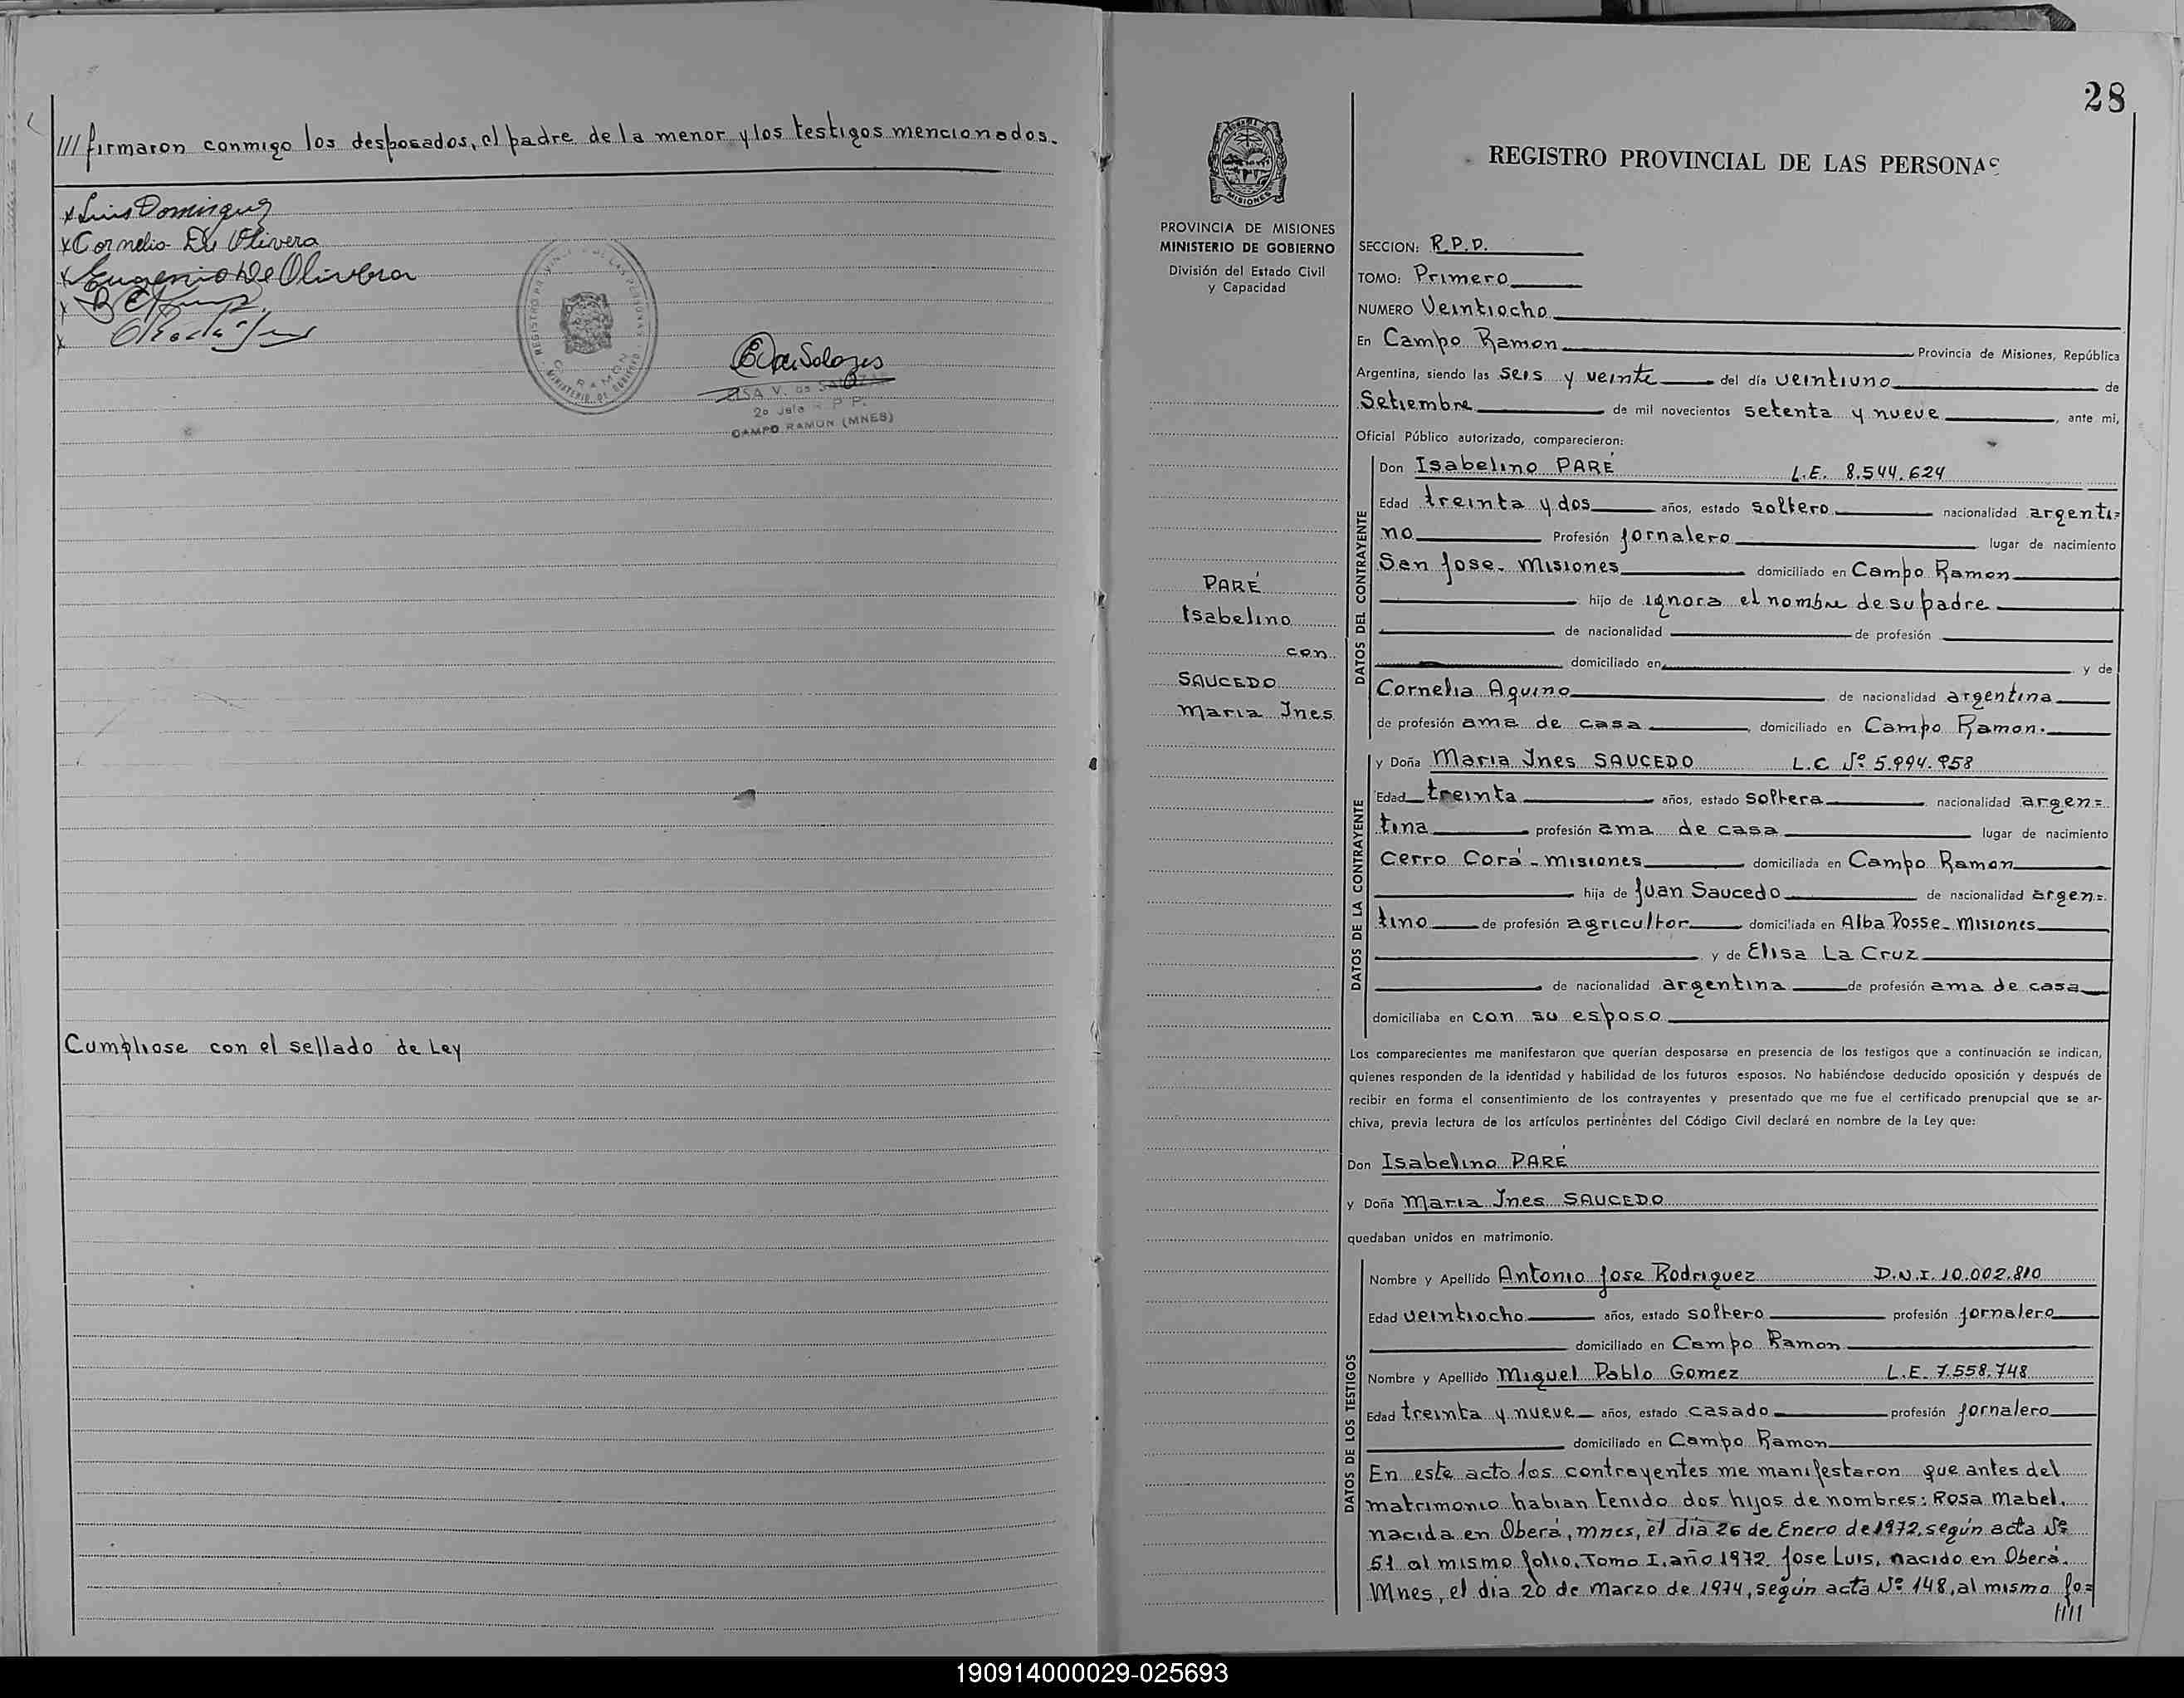 /// firmaron conmigo los desposados, el padre de la menor y los testigos mencionados.
x Luis Dominguez
x Cornelio De Olivera
x Eugenio De Olivera
x
x
REGISTRO PROVINCIAL DE LAS PERSONAS
C. RAMON
MINISTERIO DE GOBIERNO
E V de Salazar
ELSA V. de SALAZAR
2º Jefe R P P.
CAMPO RAMON (MNES)
Cumpliose con el sellado de Ley
28
MISIONES
PROVINCIA DE MISIONES
MINISTERIO DE GOBIERNO
División del Estado Civil
y Capacidad
PARÉ
Isabelino
con
SAUCEDO
Maria Ines
REGISTRO PROVINCIAL DE LAS PERSONAS
SECCION: R.P.P.
TOMO: Primero
NUMERO Veintiocho
En Campo Ramon Provincia de Misiones, República
Argentina, siendo las seis y veinte del día veintiuno de
Setiembre de mil novecientos setenta y nueve, ante mi,
Oficial Público autorizado, comparecieron:
DATOS DEL CONTRAYENTE
Don Isabelino PARÉ L.E. 8.544.624
Edad treinta y dos años, estado soltero nacionalidad argenti=
no Profesión jornalero lugar de nacimiento
San Jose - Misiones domiciliado en Campo Ramon
hijo de ignora el nombre de su padre
de nacionalidad de profesión
domiciliado en y de
Cornelia Aquino de nacionalidad argentina
de profesión ama de casa, domiciliado en Campo Ramon.
DATOS DE LA CONTRAYENTE
y Doña Maria Ines SAUCEDO L.C Nº 5.994.958
Edad treinta años, estado soltera nacionalidad argen=
tina profesión ama de casa lugar de nacimiento
Cerro Corá - Misiones domiciliada en Campo Ramon
hija de Juan Saucedo de nacionalidad argen=
tino de profesión agricultor domiciliada en Alba Posse - Misiones
y de Elisa La Cruz
de nacionalidad argentina de profesión ama de casa
domiciliaba en con su esposo
Los comparecientes me manifestaron que querían desposarse en presencia de los testigos que a continuación se indican,
quienes responden de la identidad y habilidad de los futuros esposos. No habiéndose deducido oposición y después de
recibir en forma el consentimiento de los contrayentes y presentado que me fue el certificado prenupcial que se ar-
chiva, previa lectura de los artículos pertinentes del Código Civil declaré en nombre de la Ley que:
Don Isabelino PARÉ
y Doña Maria Ines SAUCEDO
quedaban unidos en matrimonio.
DATOS DE LOS TESTIGOS
Nombre y Apellido Antonio Jose Rodriguez D.N.I. 10.002.810
Edad veintiocho años, estado soltero profesión jornalero
domiciliado en Campo Ramon
Nombre y Apellido Miguel Pablo Gomez L.E. 7.558.748
Edad treinta y nueve años, estado casado profesión jornalero
domiciliado en Campo Ramon
En este acto los contrayentes me manifestaron que antes del
matrimonio habian tenido dos hijos de nombres: Rosa Mabel,
nacida en Oberá, mnes, el dia 26 de Enero de 1972, según acta Nº
51 al mismo folio, Tomo I, año 1972. Jose Luis, nacido en Oberá.
Mnes, el dia 20 de Marzo de 1974, según acta Nº 148, al mismo fo=
////
190914000029-025693